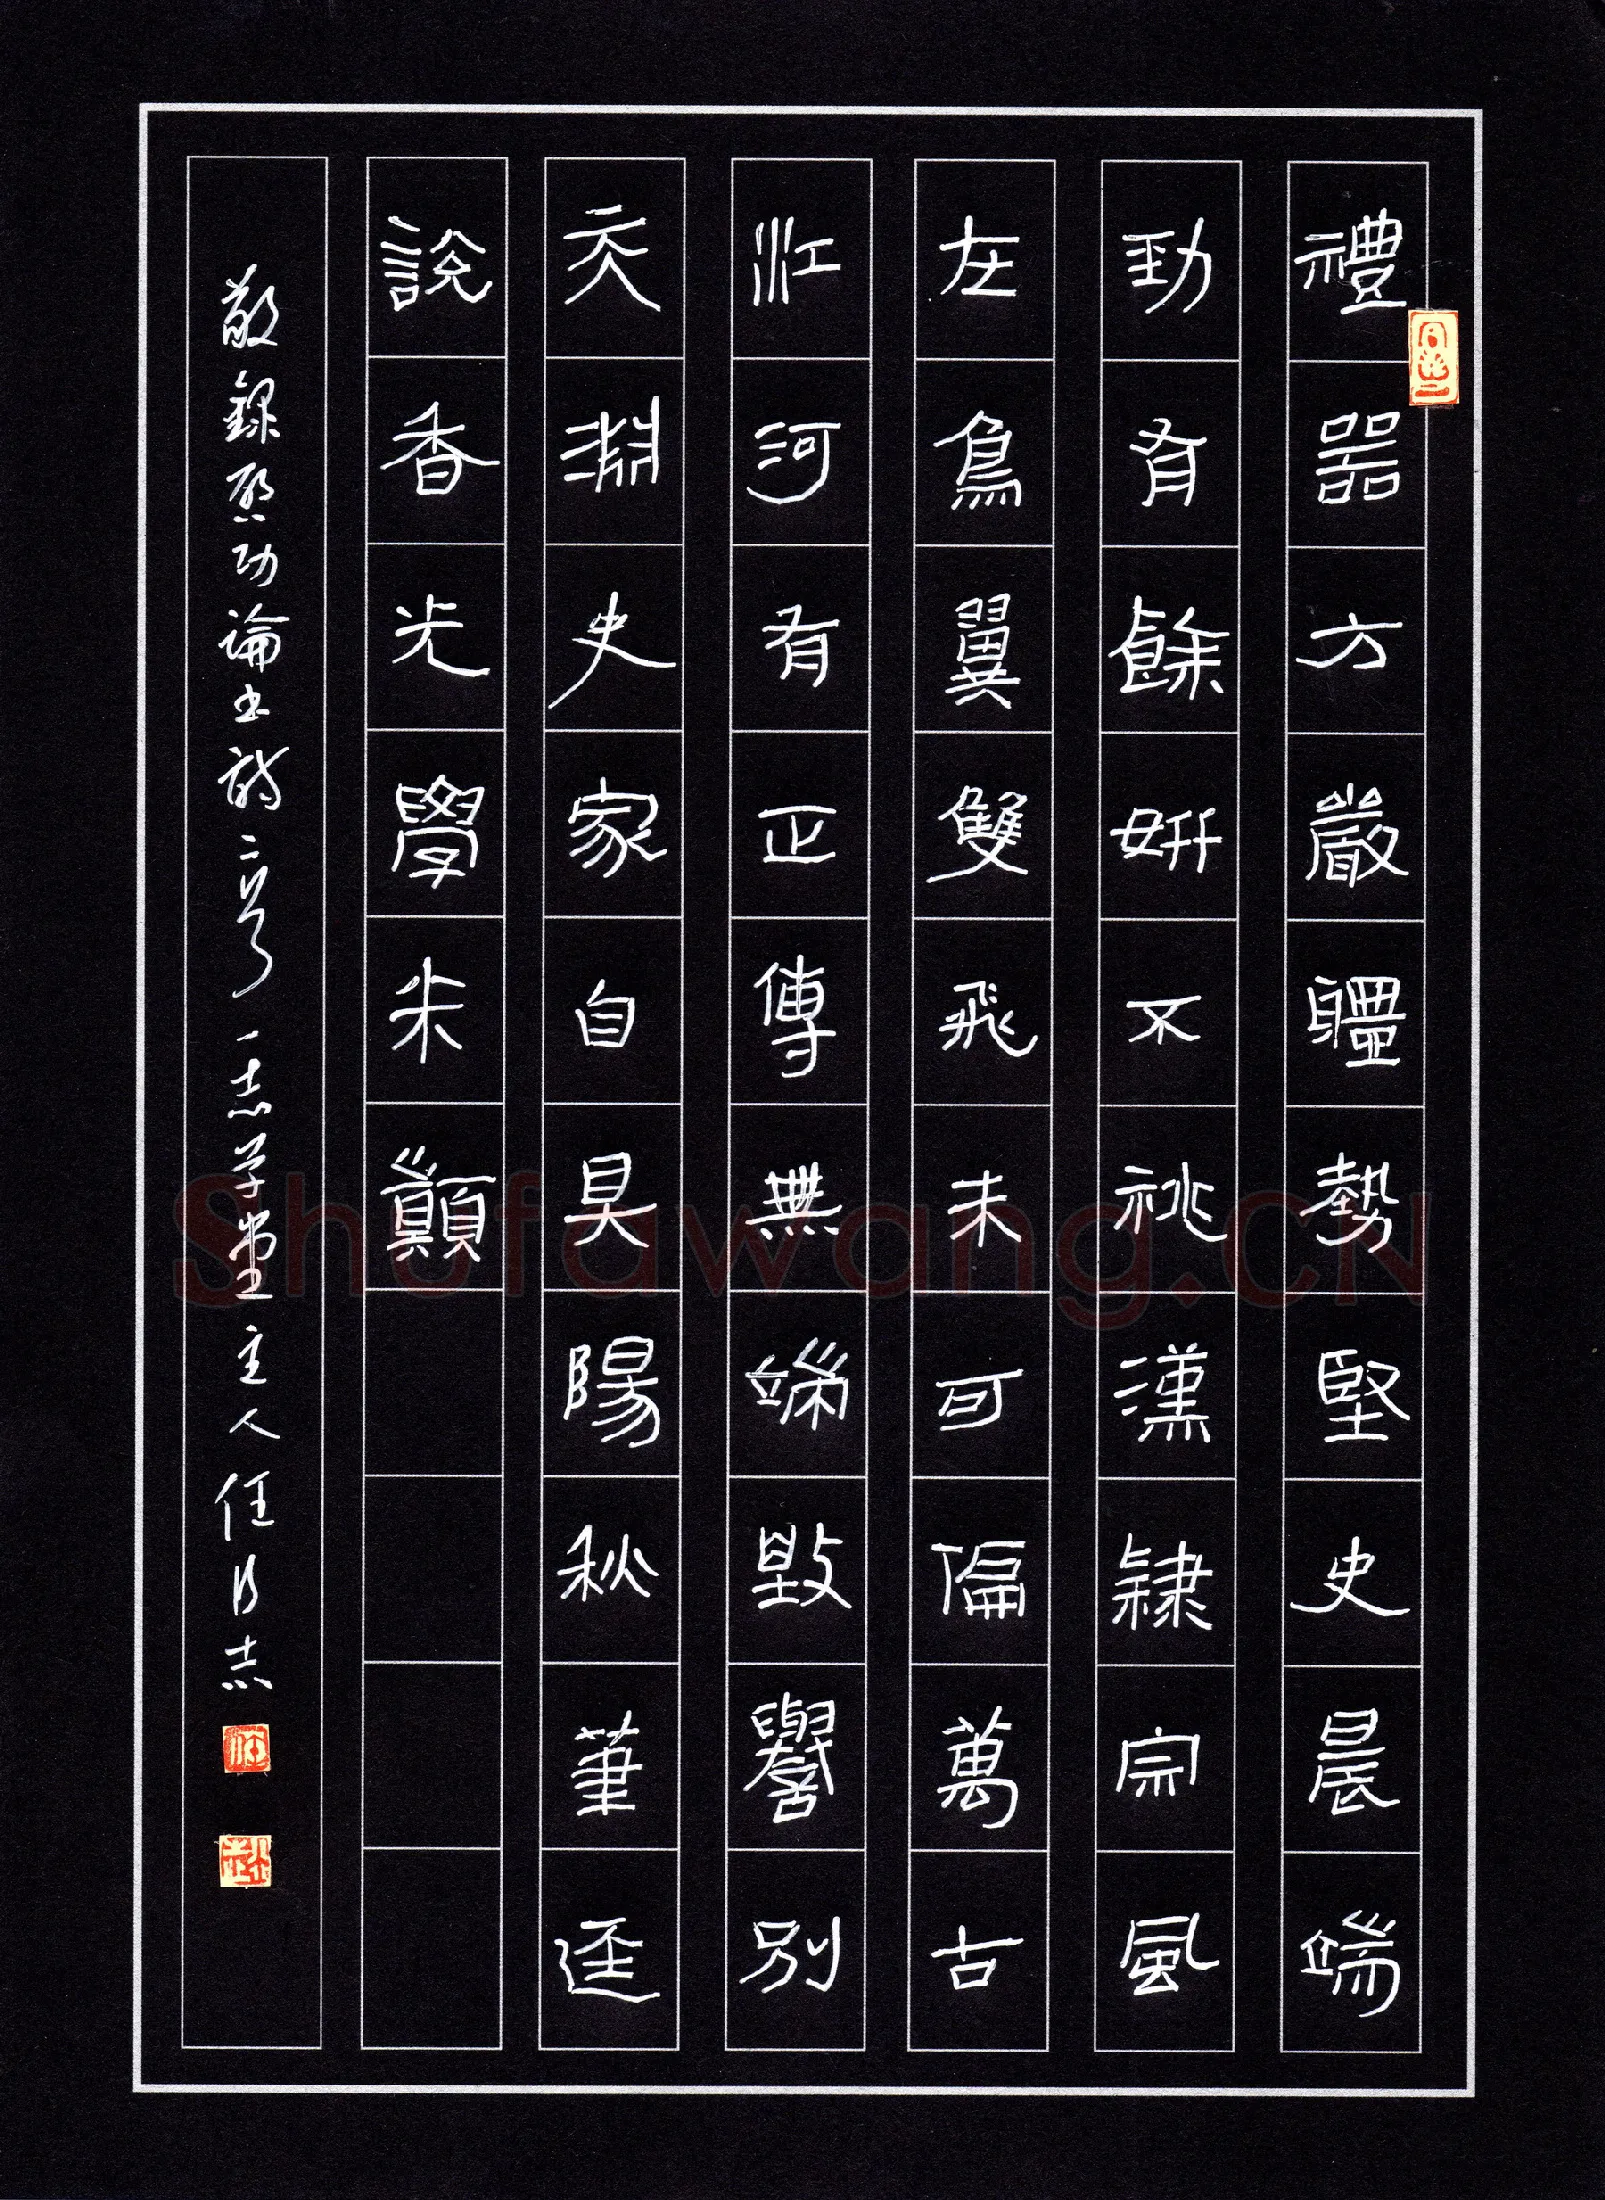 禮器方嚴體勢堅史晨端
勁有餘妍不祧漢隸宗風
在鳥翼雙飛未可偏萬古
江河有正傳無端毀譽別
天淵史家自具陽秋筆逕
說香光學米巔
敬錄啟功論書詩二首一志学堂主人任志
Shufawang.CN